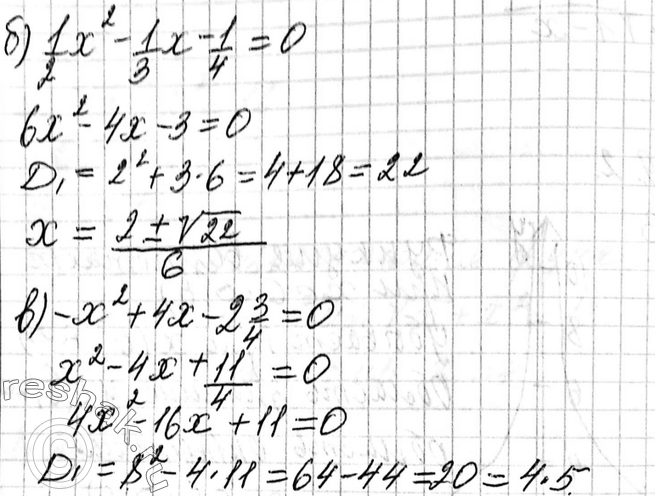 б) 1/2 x² - 1/3 x - 1/4 = 0
6x² - 4x - 3 = 0
D₁ = 2² + 3·6 = 4+18 = 22
x = (2 ± √22)/6
в) -x² + 4x - 2 3/4 = 0
x² - 4x + 11/4 = 0
4x² - 16x + 11 = 0
D₁ = 8² - 4·11 = 64 - 44 = 20 = 4·5
reshak.ru